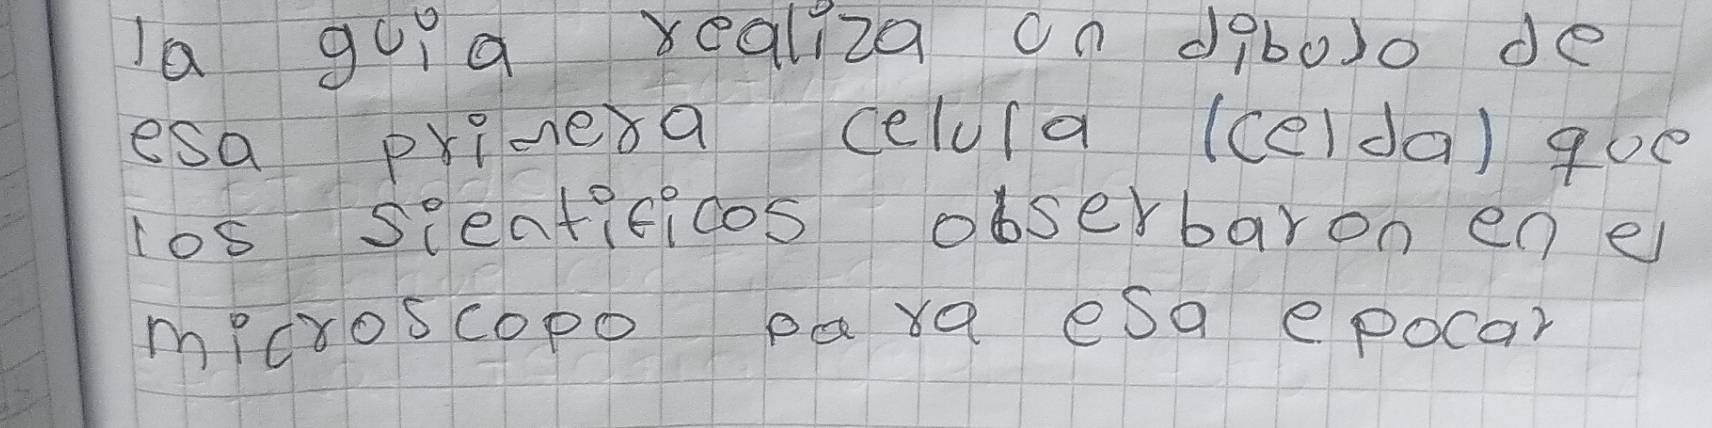 la guia realiza un dibujo de
esa primera celula (celda) que
los sientificos obserbaron en el
microscopo para esa epocar